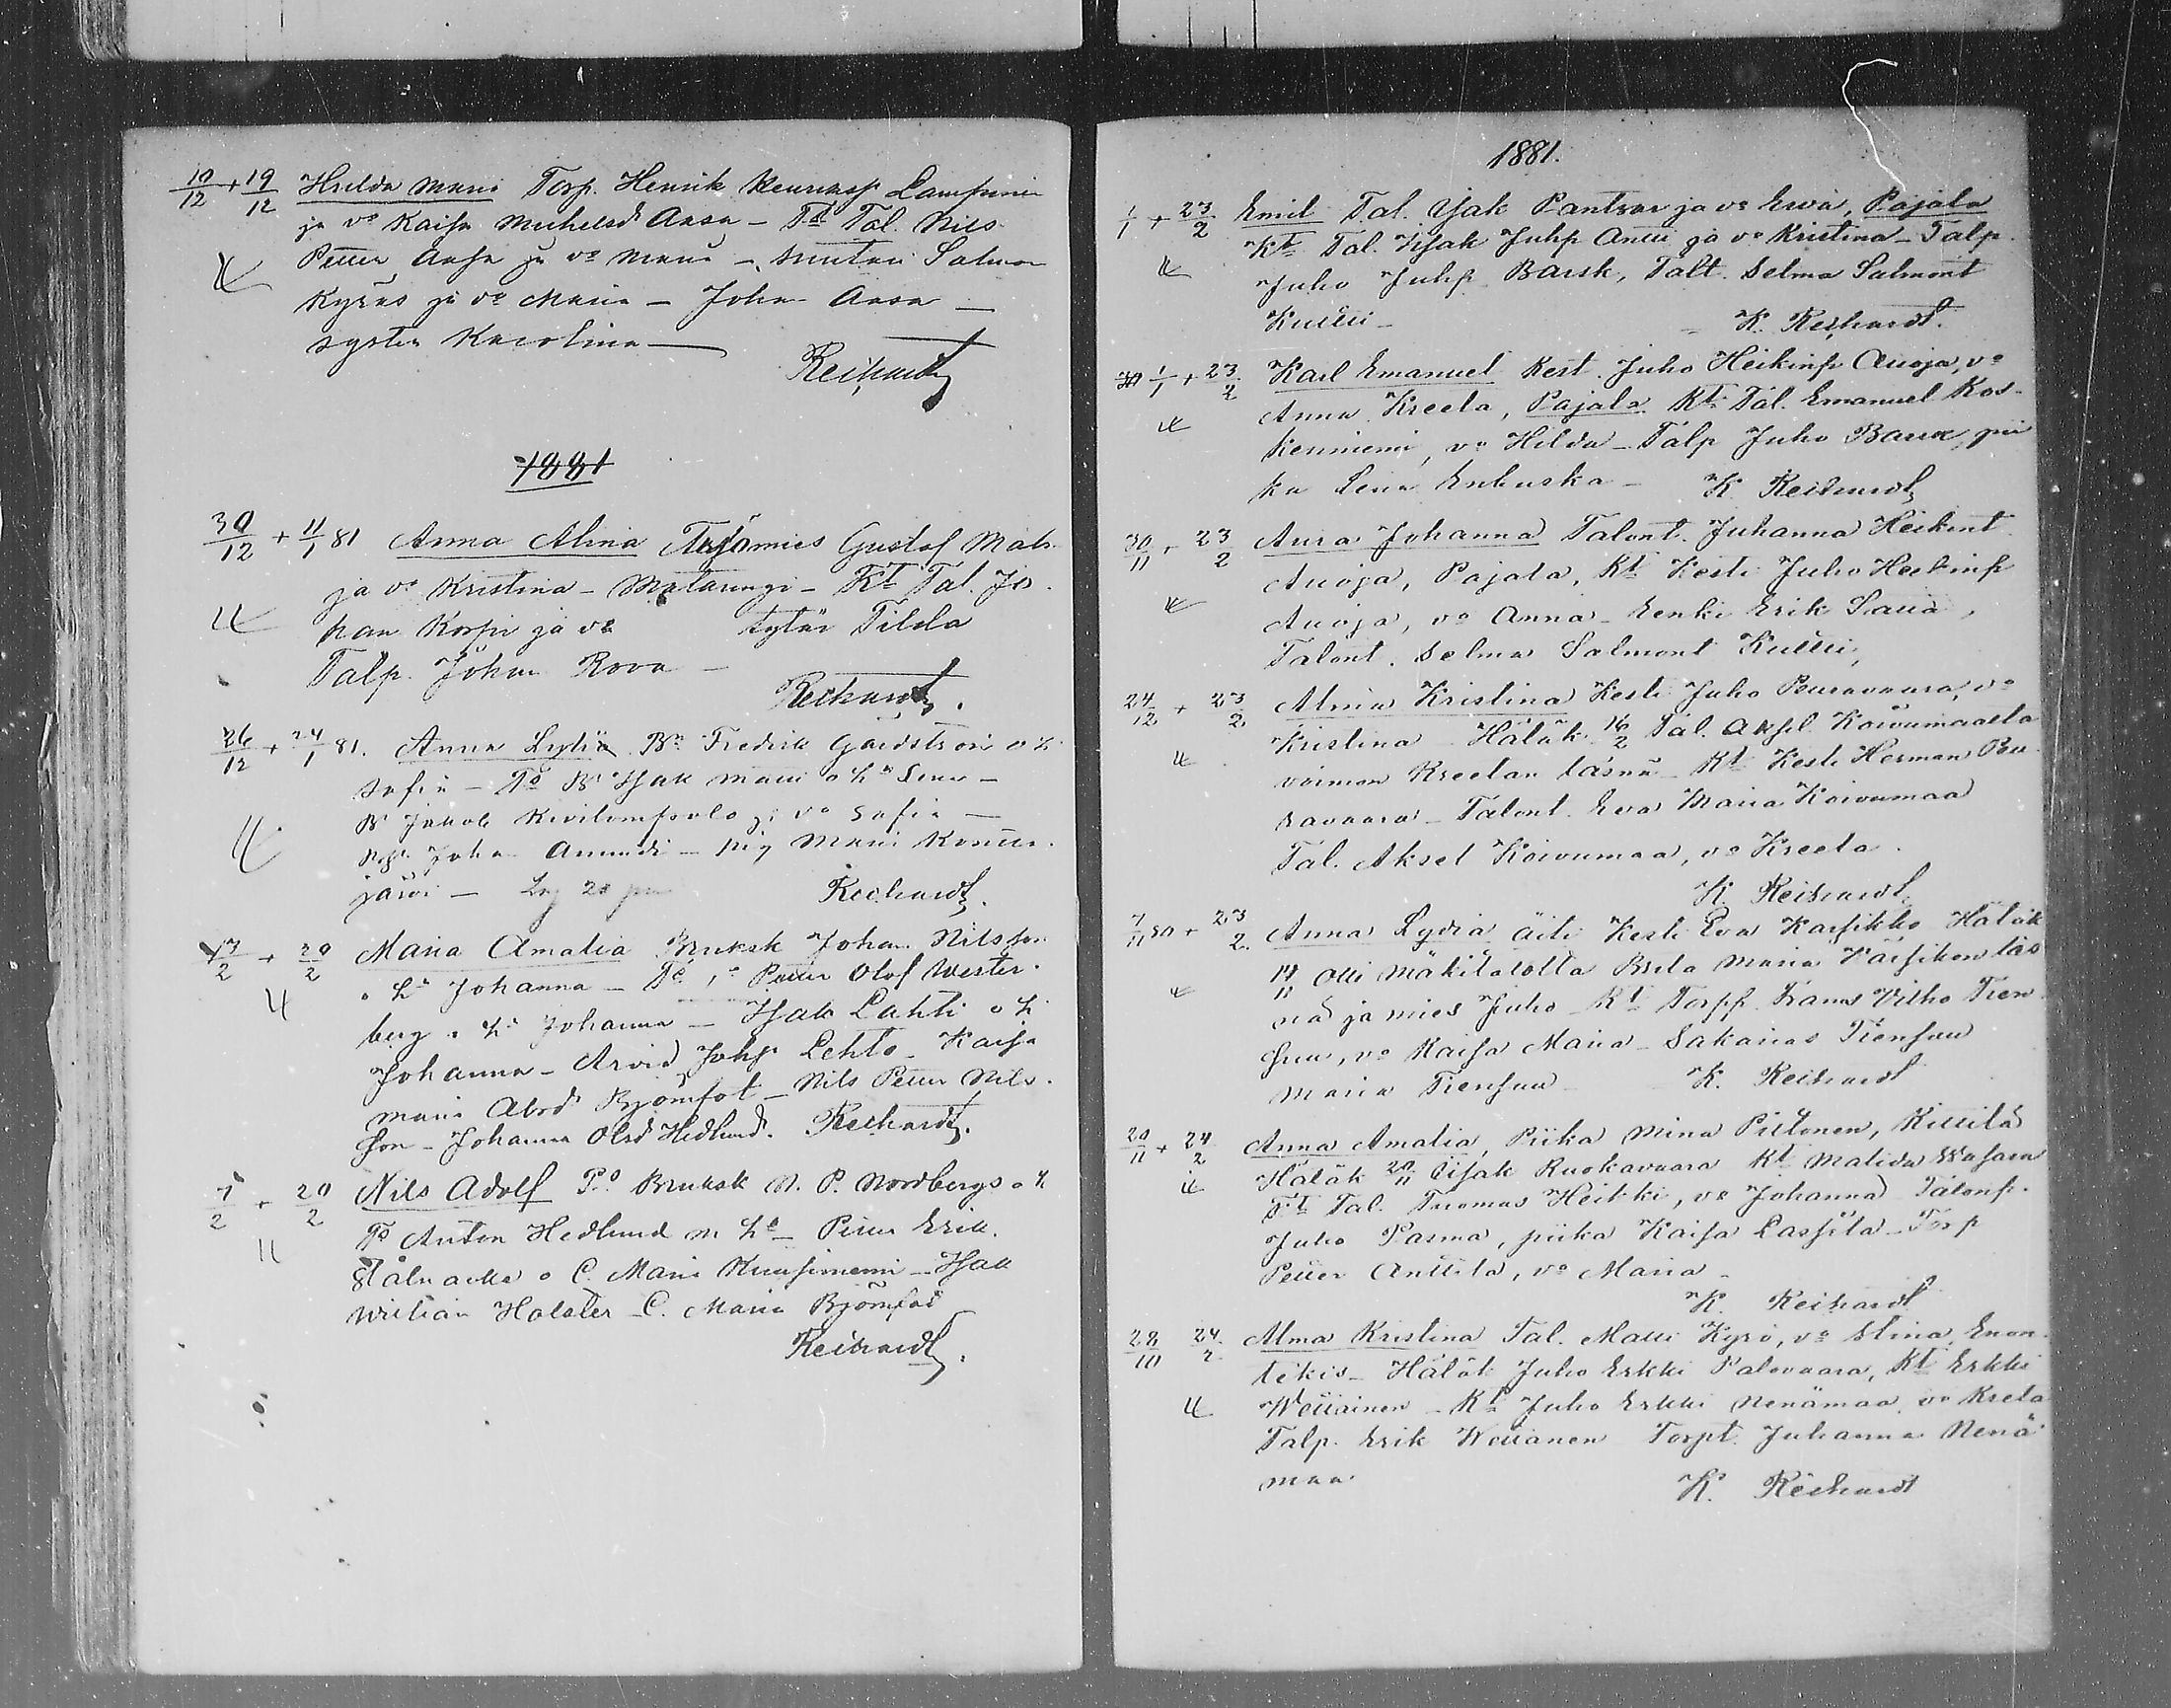 10/12 + 19/12 Hulda Maria Torp. Henrik Henriksp Lampinen
ja vo Kaisa Michelsd Aasa – Tt Tal. Nils
Petter Aasa ja vo Maria – Salmon
Kyrös ja vo Maria – Johan Aasa –
syster Karolina –
Reichardt
1881
30/12 + 4/1 81 Anna Alina Työmies Gustaf Mats.
ja vo Kristina – Matarengi – Kt Tal. Jo-
han Korpi ja vo tytär Tilda
Talp. Johan Rova –
Reichardt.
26/12 + 24/1 81. Anna Lydia Bn Fredrik o h
Sofia – To Bn Isak o ho Lena –
Bn Jakob Kivilompolo ja vo Sofia –
Johan – Pig Maria
järvi – Reichardt.
13/2 + 20/2 Maria Amalia Bruksk Johan Nilsson
o ho Johanna – To Petter Olof Wester-
berg o ho Johanna – Isak Lahti o h
Johanna – Arvid Johsp Lehto – Kaisa
Maria Abrd Björnfot – Nils Petter Nils-
son – Johanna Olsd Hedlund. Reichardt.
7/2 + 20/2 Nils Adolf Po Bruksk N. P. Nordbergs o h
To Anton Hedlund m ho – Petter Erik.
Stålnacke o C. Maria Kuusiniemi – Isak
Wilian Holster – C. Maria Björnfot
Reichardt.
1881.
1/1 + 23/2 Emil Tal. Isak Pantsar ja vo Eeva, Pajala
Kt Tal. Isak Juhp Antti ja vo Kristina – Talp.
Juho Juhp Barsk, Talt. Selma Salmont
Kuitti – K. Reichardt.
1/1 + 23/2 Karl Emanuel Kest. Juho Heikinp Auoja, vo
Anna Kreeta, Pajala Kt Tal. Emanuel Kos-
kenniemi, vo Hilda – Talp Juho Barsk, pii
ka Lena – K Reichardt
30/11 + 23/2 Aura Johanna Talont. Juhanna Heikint
Auoja, Pajala, Kt Kesti Juho Heikinp
Auoja, vo Anna – Renki Erik
Talont. Selma Salmont Kuitti,
24/12 + 23/2 Alma Kristina Kesti Juho Peuravaara, vo
Kristina – Hätäk 16/2 Tal. Aksel Koivumaalta
vaimon Kreetan läsnä – Kt Kesti Herman Peu
ravaara – Talont. Eva Maria Koivumaa
Tal. Aksel Koivumaa, vo Kreeta.
K. Reichardt
7/11 80 + 23/2 Anna Lydia äiti Kesti Eva Karsikko Hätäk
14/11 Olli Mäkitalolta Brita Maria Karsikon läs
nä ja mies Juho – Kt Torpp. Frans Vilho Tien
suu, vo Kaisa Maria – Sakarias Tiensuu
Maria Tiensuu – K. Reichardt
20/11 + 24/2 Anna Amalia, Piika Mina Piltonen, Kittilä
Hätäk 20/11 Iisak Ruokavaara Kt Matilda
Tt Tal. Tuomas Heikki, vo Johanna Talonp.
Juho Parma, piika Kaisa Lassila – Torp
Petter Anttila, vo Maria –
K. Reichardt
28/10 24/2 Alma Kristina Tal. Matti Kyrö, vo Stina, Enon-
tekis – Hätäk Juho Erkki Palovaara, Kt Erkki
Wettainen – Kt Juho Erkki Nenämaa, vo Kreta
Talp. Erik Wettanen Torpt. Juhanna Nenä
maa K. Reichardt